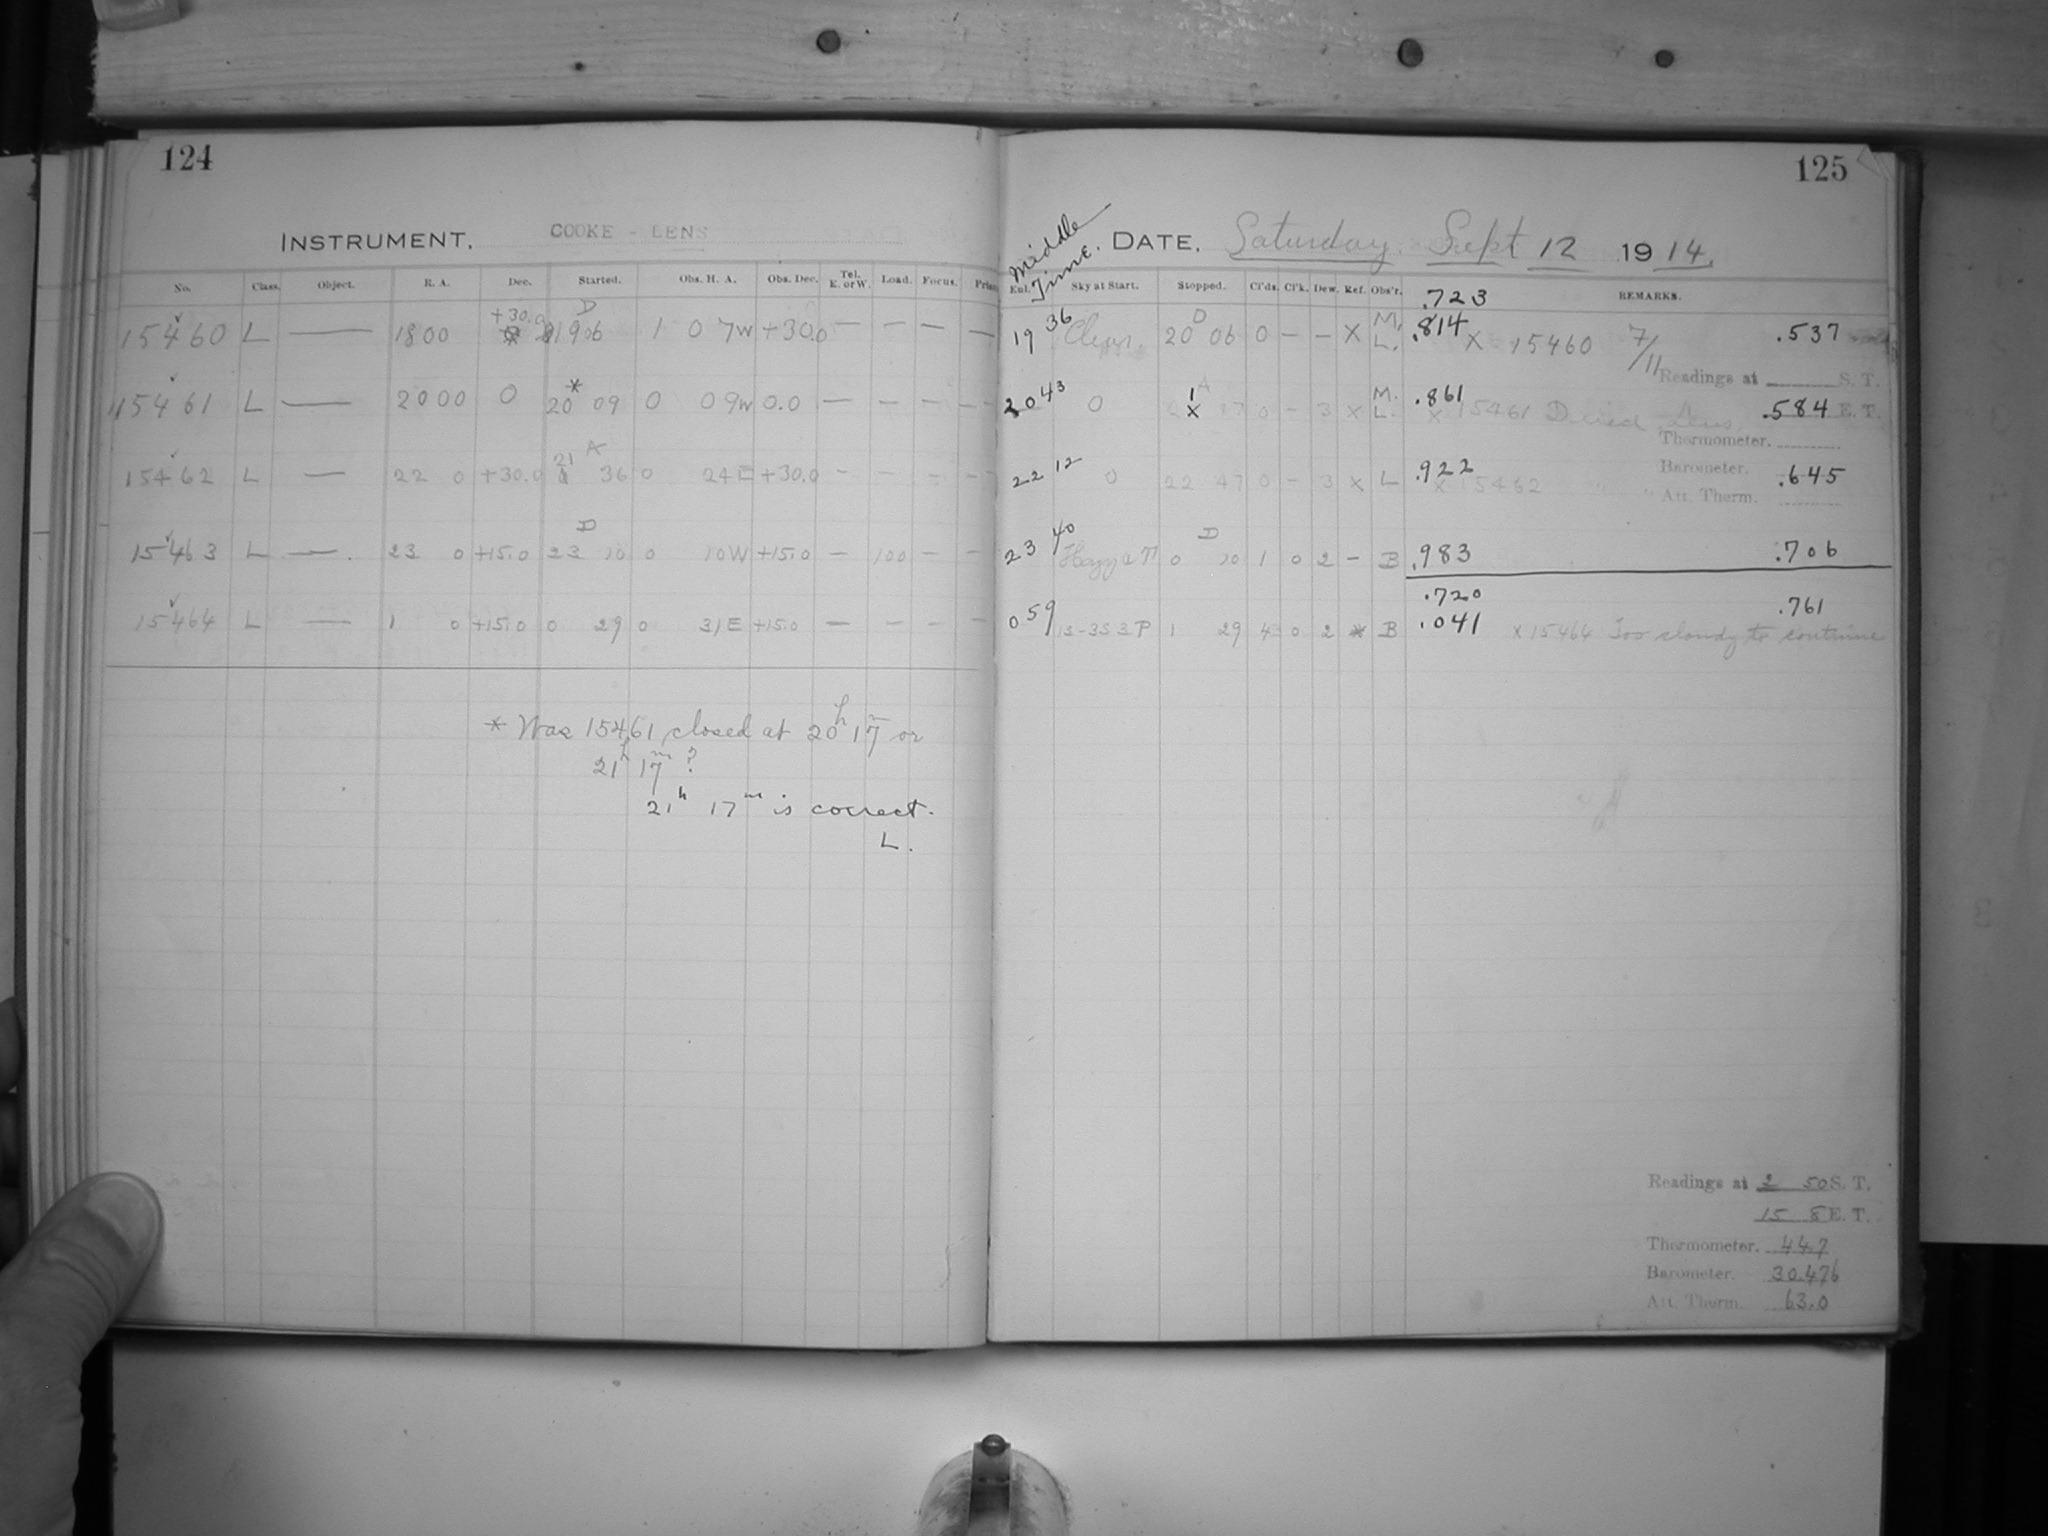 124
INSTRUMENT. COOKE - LENS
No. Class. Object. R. A. Dec. Started. Obs. H. A. Obs. Dec. Tel. E. or W. Load. Focus.
15460 L — 18 00 +30.0 D 19 06 1 07W +30.0 — — — —
15461 L — 20 00 0 * 20 09 0 09W 0.0 — — — —
15462 L — 22 0 +30.0 A 21 36 0 24E +30.0 - - - -
15463 L — 23 0 +15.0 D 23 10 0 10W +15.0 — 100 - -
15464 L — 1 0 +15.0 0 29 0 31E +15.0 — — - -
* Was 15461 closed at 20h 17m or
21h 17m ?
21h 17m is correct.
L.
125
Middle Time. DATE. Saturday. Sept 12 1914.
Sky at Start. Stopped. Cl'ds. Cl'k. Dew. Ref. Obs'r. REMARKS.
.723
19 36 Clear. D 20 06 0 — — X M. L. .814 X 15460 7/11 .537
Readings at S. T.
20 43 0 17 0 - 3 X M. L. .861 X 15461 .584 E. T.
Thermometer.
22 12 0 22 47 0 - 3 X L .922 X 15462 .645
Barometer.
Att. Therm.
23 40 D 0 10 1 0 2 - B .983 .706
.720
0 59 1 29 4 0 2 * B .041 X 15464 Too cloudy to continue .761
Readings at 2 50 S. T.
15 8 E. T.
Thermometer. 44.7
Barometer. 30.476
Att. Therm. 63.0